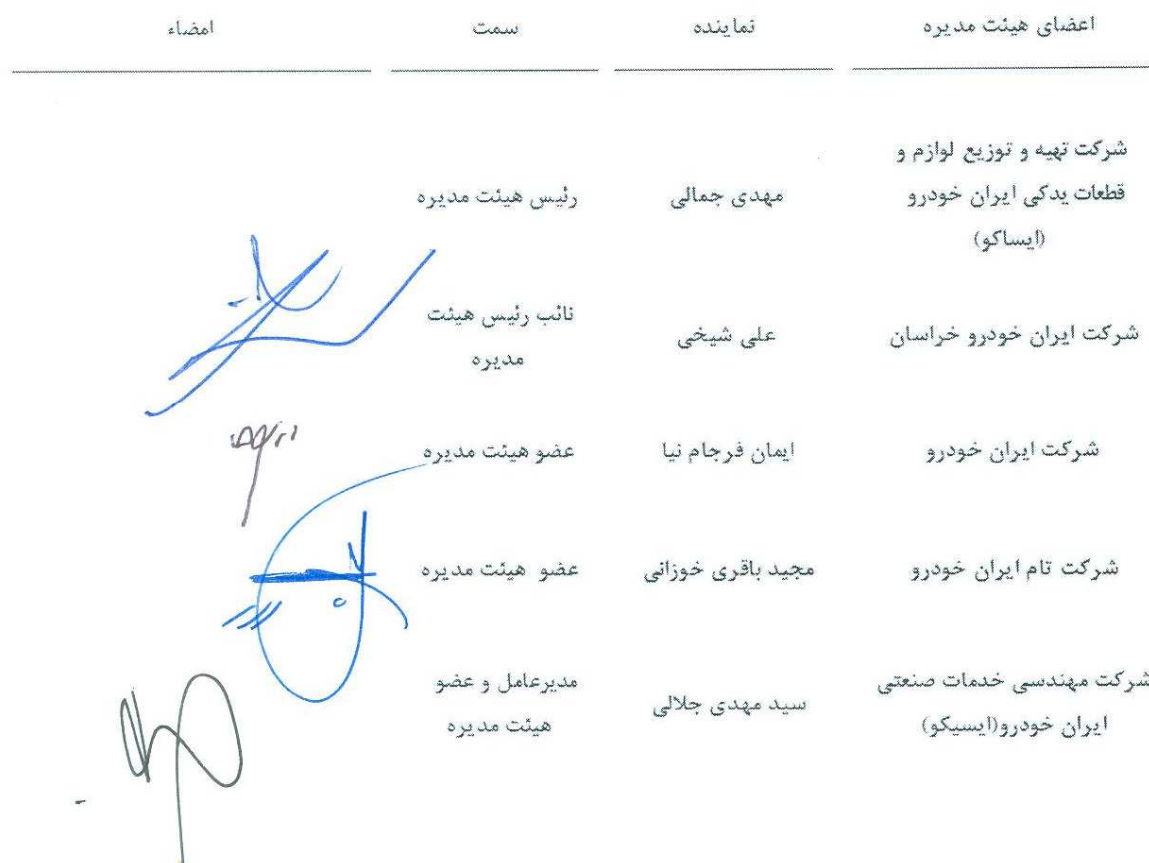 اعضای هیئت مدیره نماینده سمت امضاء
شرکت تهیه و توزیع لوازم و
قطعات یدکی ایران خودرو
(ایساکو)
مهدی جمالی
رئیس هیئت مدیره
شرکت ایران خودرو خراسان
علی شیخی
نائب رئیس هیئت
مدیره
شرکت ایران خودرو
ایمان فرجام نیا
عضو هیئت مدیره
شرکت تام ایران خودرو
مجید باقری خوزانی
عضو هیئت مدیره
شرکت مهندسی خدمات صنعتی
ایران خودرو(ایسیکو)
سید مهدی جلالی
مدیرعامل و عضو
هیئت مدیره